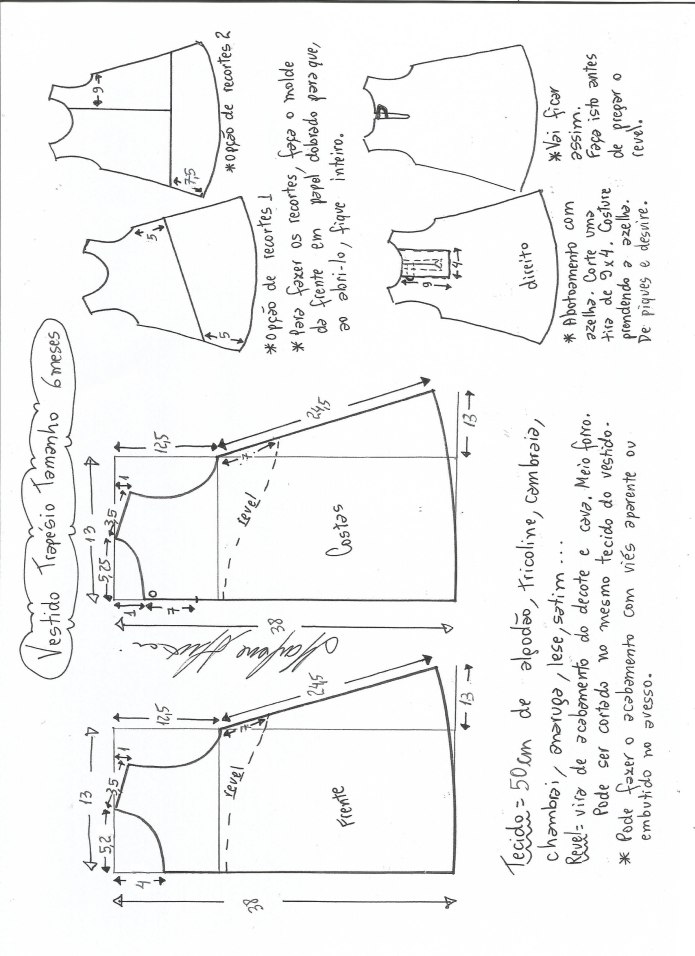 Vestido Trapésio Tamanho 6 meses
13
5,2
3,5
1
4
12,5
7
revel
24,5
Frente
38
13
13
5,25
3,5
1
1
7
12,5
7
revel
24,5
Costas
38
13
Marlene Mukai
5
5
*Opção de recortes 1
9
7,5
*Opção de recortes 2
*Para fazer os recortes, faça o molde
da frente em papel dobrado para que,
ao abri-lo, fique inteiro.
9
4
direito
*Abotoamento com
azelha. Corte uma
tira de 9x4. Costure
prendendo a azelha.
De piques e desvire.
*Vai ficar
assim.
Faça isto antes
de pregar o
revel.
Tecido = 50cm de algodão, tricoline, cambraia,
chambrai, anaruga, lese, setim...
Revel = vira de acabamento do decote e cava. Meio forro.
Pode ser cortado no mesmo tecido do vestido.
* Pode fazer o acabamento com viés aparente ou
embutido no avesso.